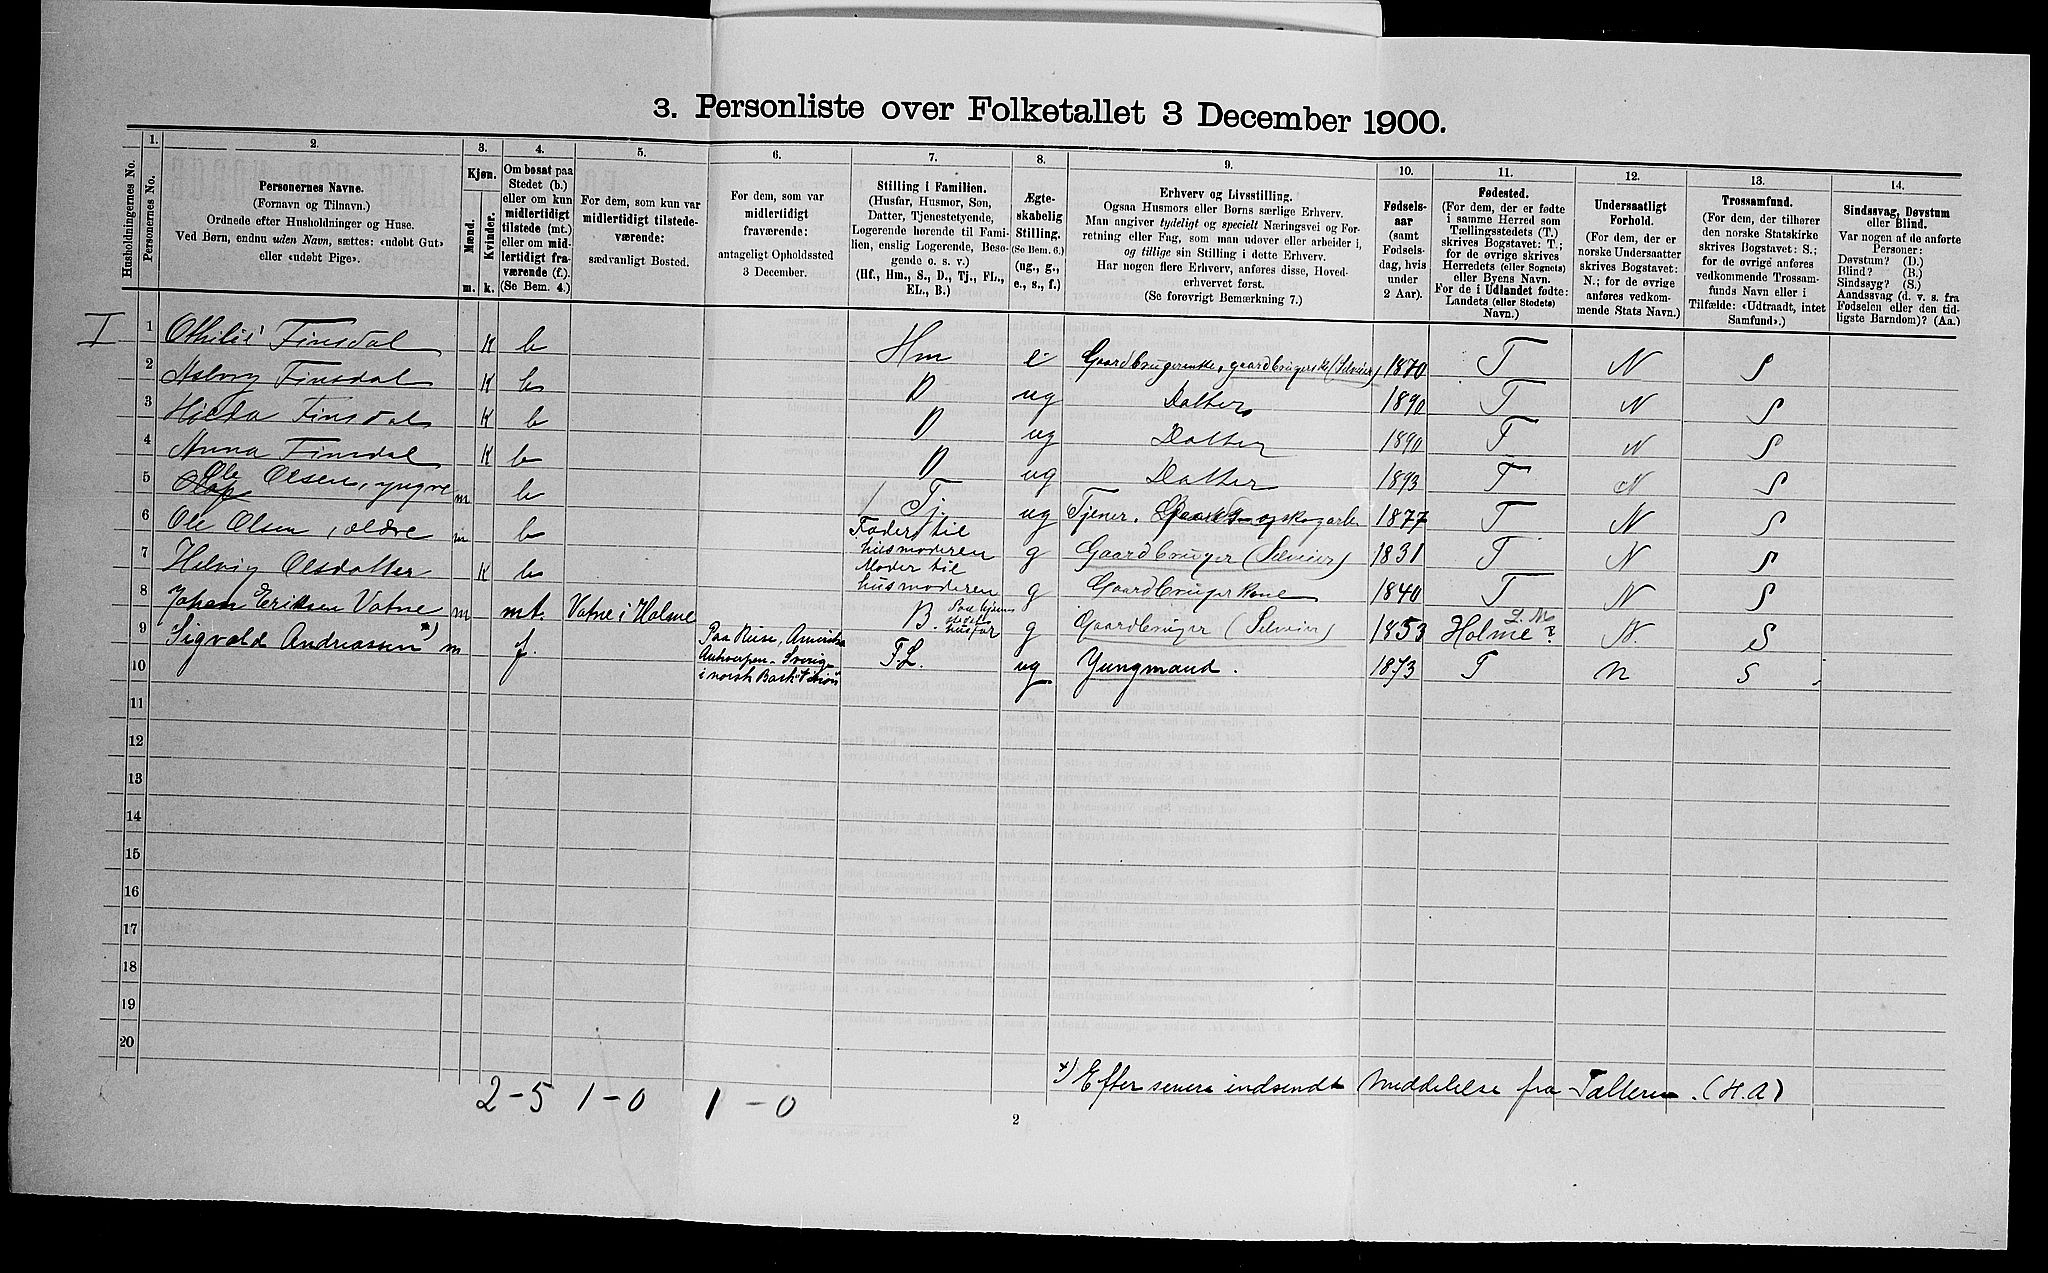 3. Personliste over Folketallet 3 December 1900.
Husholdningernes No.
1.
Personernes No.
2.
Personernes Navne.
(Fornavn og Tilnavn.)
Ordnede efter Husholdninger og Huse.
Ved Børn, endnu uden Navn, sættes: «udøbt Gut»
eller «udøbt Pige».
3.
Kjøn.
Mænd.
Kvinder.
m. k.
4.
Om bosat paa
Stedet (b.)
eller om kun
midlertidigt
tilstede (mt.)
eller om mid-
lertidigt fra-
værende (f.).
(Se Bem. 4.)
5.
For dem, som kun var
midlertidigt tilstede-
værende:
sædvanligt Bosted.
6.
For dem, som var
midlertidigt
fraværende:
antageligt Opholdssted
3 December.
7.
Stilling i Familien.
(Husfar, Husmor, Søn,
Datter, Tjenestetyende,
Logerende hørende til Fami-
lien, enslig Logerende, Besø-
gende o. s. v.)
(Hf., Hm., S., D., Tj., FL.,
EL., B.)
8.
Ægte-
skabelig
Stilling.
(Se Bem. 6.)
(ug., g.,
e., s., f.)
9.
Erhverv og Livsstilling.
Ogsaa Husmors eller Børns særlige Erhverv.
Man angiver tydeligt og specielt Næringsvei og For-
retning eller Fag, som man udøver eller arbeider i,
og tillige sin Stilling i dette Erhverv.
Har nogen flere Erhverv, anføres disse, Hoved-
erhvervet først.
(Se forøvrigt Bemærkning 7.)
10.
Fødsels-
aar
(samt
Fødsels-
dag, hvis
under
2 Aar).
11.
Fødested.
(For dem, der er fødte
i samme Herred som
Tællingsstedets (T.)
skrives Bogstavet: T.;
for de øvrige skrives
Herredets (eller Sognets)
eller Byens Navn.
For de i Udlandet fødte:
Landets (eller Stedets)
Navn.)
12.
Undersaatligt
Forhold.
(For dem, der er
norske Undersaatter
skrives Bogstavet:
N.; for de øvrige
anføres vedkom-
mende Stats Navn.)
13.
Trossamfund.
(For dem, der tilhører
den norske Statskirke
skrives Bogstavet: S.;
for de øvrige anføres
vedkommende Trossam-
funds Navn eller i
Tilfælde: «Udtraadt, intet
Samfund».)
14.
Sindssvag, Døvstum
eller Blind.
Var nogen af de anførte
Personer:
Døvstum? (D.)
Blind? (B.)
Sindssyg? (S.)
Aandssvag (d. v. s. fra
Fødselen eller den tid-
ligste Barndom)? (Aa.)
I 1 Othilie Finsdal K b Hm e Gaardbrugerenke, gaardbrugerske (Selveier) 1870 T N S
2 Aslaug Finsdal K b D ug Datter 1890 T N S
3 Hilda Finsdal K b D ug Datter 1890 T N S
4 Anna Finsdal K b D ug Datter 1893 T N S
5 Ole Olsen, yngre m b Tj. ug Tjener. Gaards- og skogarb. 1877 T N S
6 Ole Olsen, ældre m b Fader til husmoderen g Gaardbruger (Selveier) 1831 T N S
7 Helvig Olsdatter K b Moder til husmoderen g Gaardbrugerkone 1840 T N S
8 Johan Eriksen Vatne m mt. Vatne i Holme B. husfar g Gaardbruger (Selveier) 1853 Holme L. M. N. S
9 Sigvald Andreassen *) m f. Paa Reise, Amerika Antwerpen - Sverige i norsk Bark FL. ug Yungmand. 1873 T N S
10
11
12
13
14
15
16
17
18
19
20
*) Efter senere indsendt Meddelelse fra Tælleren. (H.A)
2-5 1-0 1-0
2